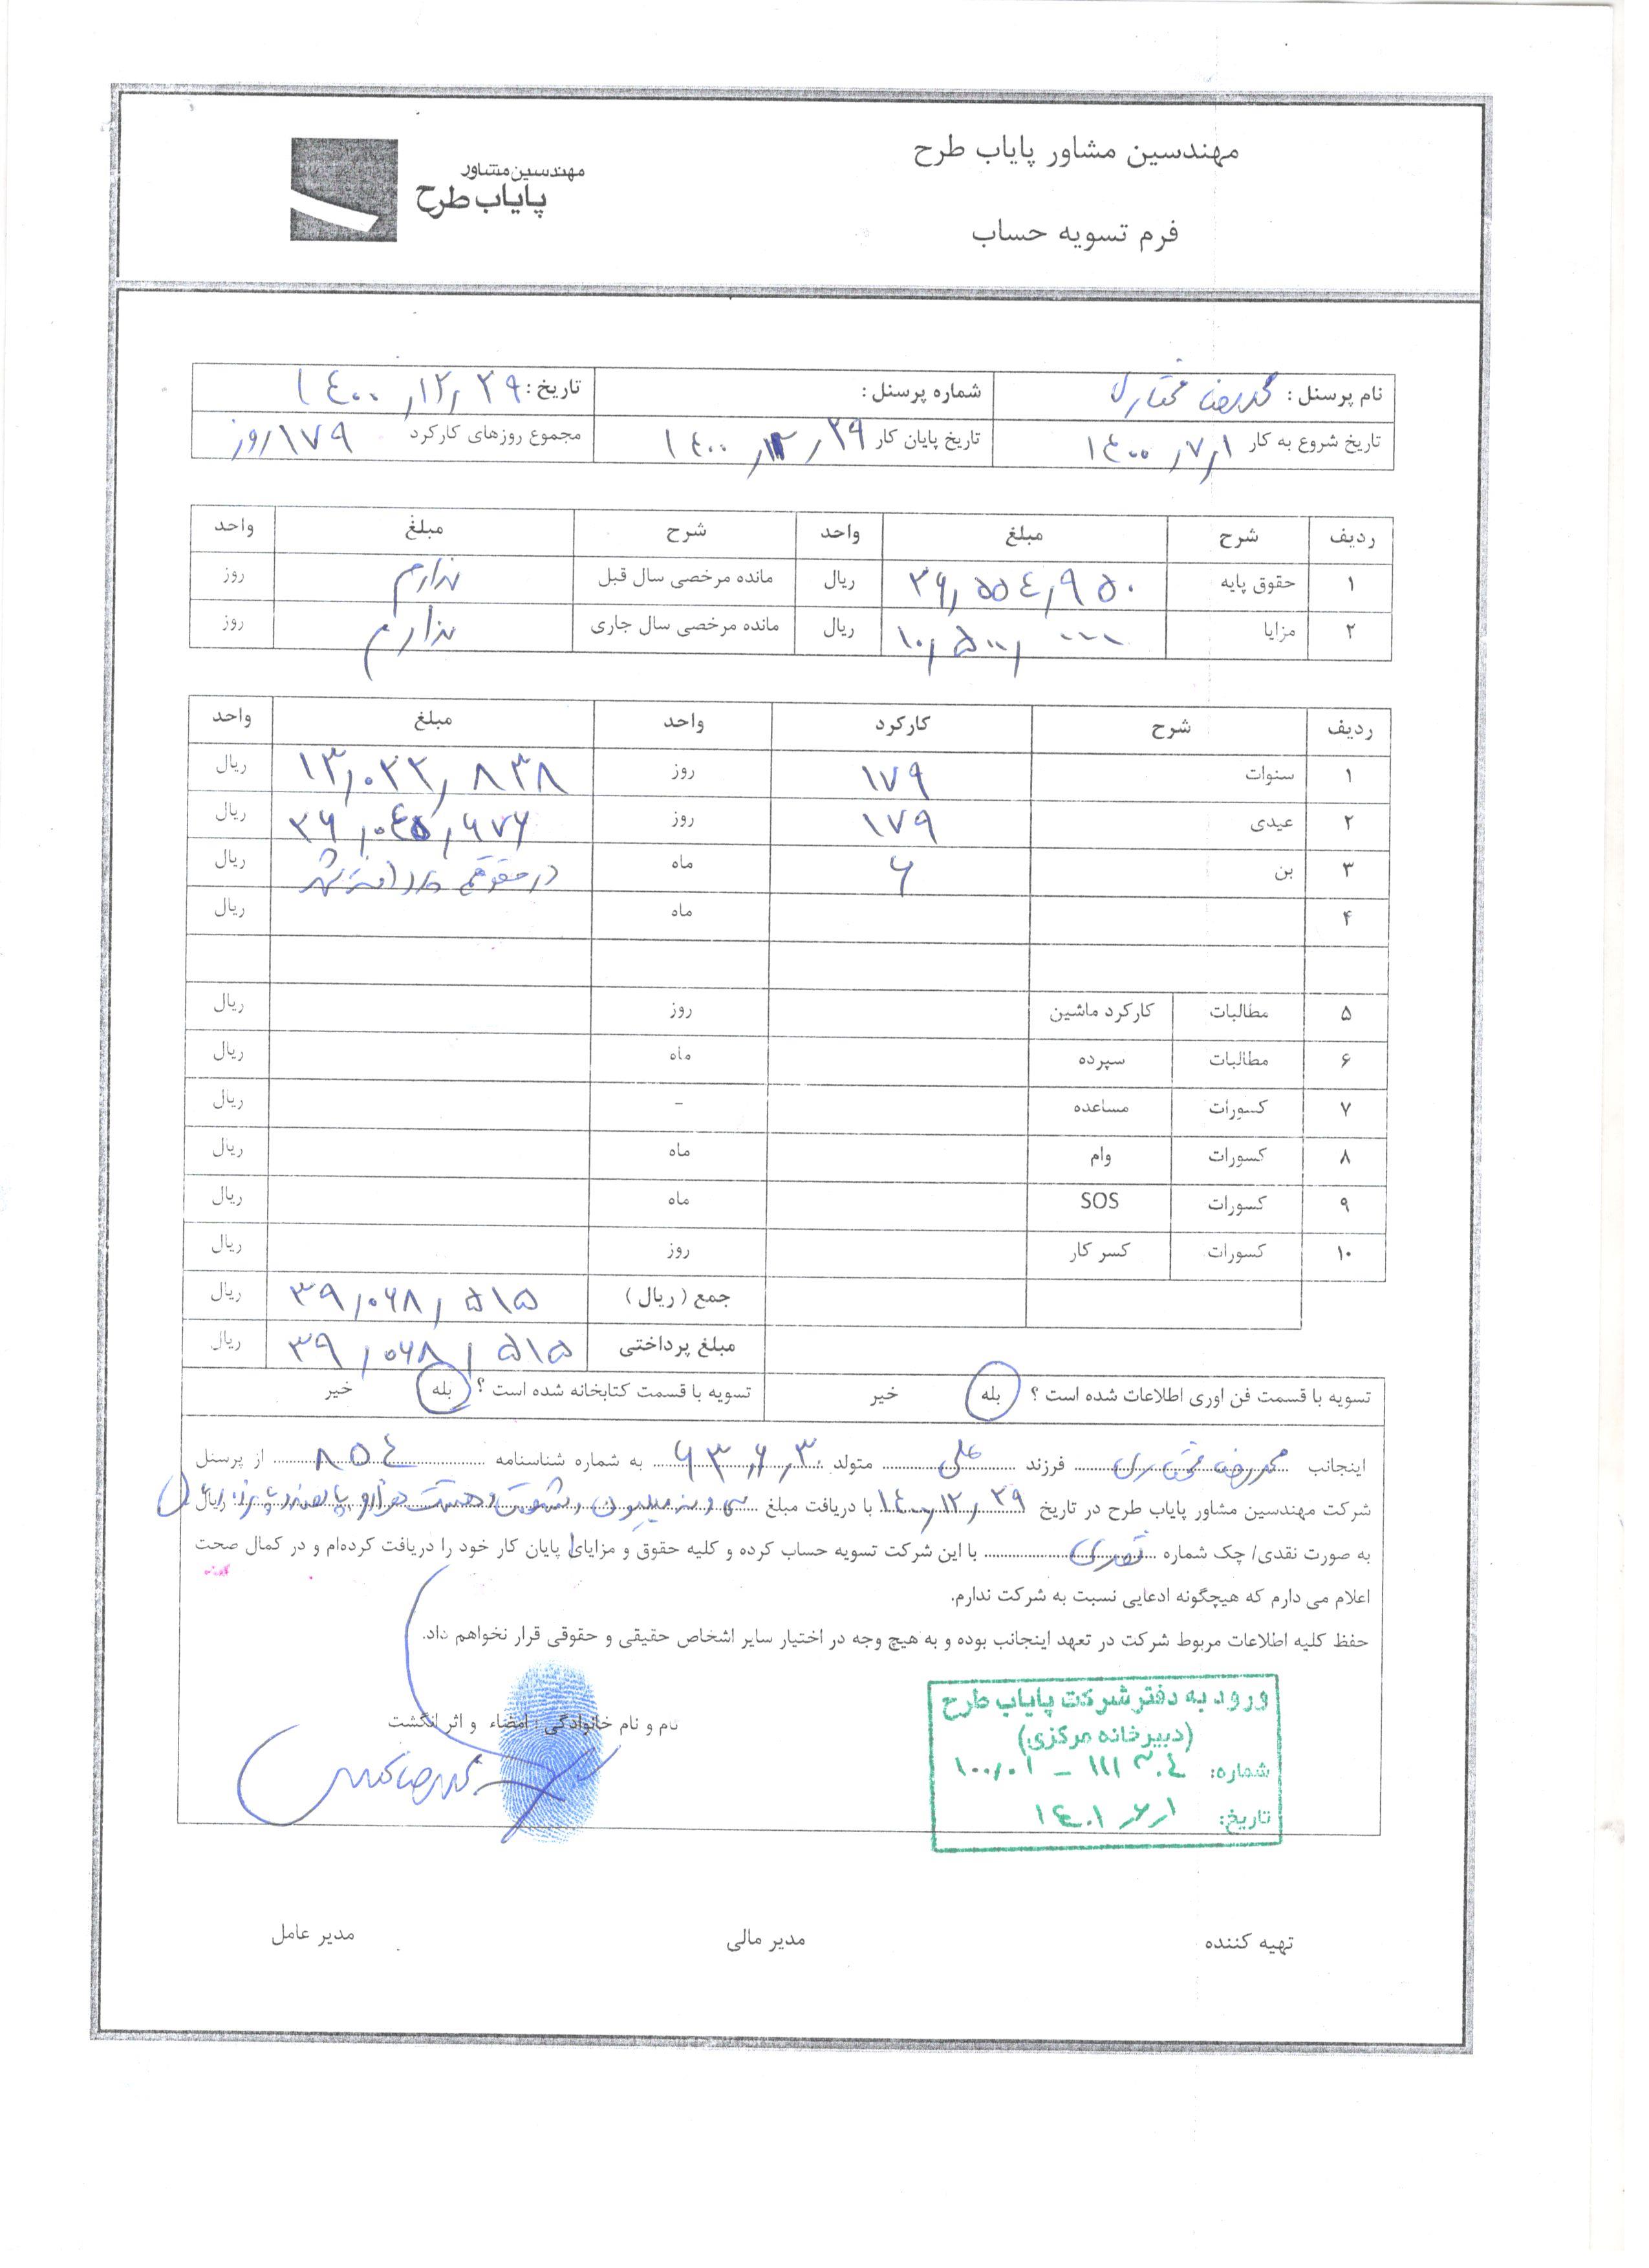 مهندسین مشاور پایاب طرح
مهندسین مشاور
پایاب طرح
فرم تسویه حساب
نام پرسنل : محمدرضا مختاری شماره پرسنل : تاریخ : ۱۴۰۰/۱۲/۲۹
تاریخ شروع به کار ۱۴۰۰/۷/۱ تاریخ پایان کار ۱۴۰۰/۱۲/۲۹ مجموع روزهای کارکرد ۱۷۹ روز
ردیف شرح مبلغ واحد شرح مبلغ واحد
۱ حقوق پایه ۲۶,۵۵۴,۹۵۰ ریال مانده مرخصی سال قبل ندارم روز
۲ مزایا ۱۰,۵۰۰,۰۰۰ ریال مانده مرخصی سال جاری ندارم روز
ردیف شرح کارکرد واحد مبلغ واحد
۱ سنوات ۱۷۹ روز ۱۳,۰۲۲,۸۳۸ ریال
۲ عیدی ۱۷۹ روز ۲۶,۰۴۵,۶۷۶ ریال
۳ بن ۶ ماه در حقوقم ریال
۴ ماه ریال
۵ مطالبات کارکرد ماشین روز ریال
۶ مطالبات سپرده ماه ریال
۷ کسورات مساعده - ریال
۸ کسورات وام ماه ریال
۹ کسورات SOS ماه ریال
۱۰ کسورات کسر کار روز ریال
جمع ( ریال ) ۳۹,۰۶۸,۵۱۵ ریال
مبلغ پرداختی ۳۹,۰۶۸,۵۱۵ ریال
تسویه با قسمت فن اوری اطلاعات شده است ؟ بله خیر تسویه با قسمت کتابخانه شده است ؟ بله خیر
اینجانب محمدرضا مختاری فرزند علی متولد ۶۳/۶/۳۰ به شماره شناسنامه ۸۵۴ از پرسنل
شرکت مهندسین مشاور پایاب طرح در تاریخ ۱۴۰۰/۱۲/۲۹ با دریافت مبلغ سی و نه میلیون و شصت و هشت هزار و پانصد و پانزده ریال ریال
به صورت نقدی/ چک شماره نقدی با این شرکت تسویه حساب کرده و کلیه حقوق و مزایای پایان کار خود را دریافت کرده‌ام و در کمال صحت
اعلام می دارم که هیچگونه ادعایی نسبت به شرکت ندارم.
حفظ کلیه اطلاعات مربوط شرکت در تعهد اینجانب بوده و به هیچ وجه در اختیار سایر اشخاص حقیقی و حقوقی قرار نخواهم داد.
نام و نام خانوادگی ؛ امضاء و اثر انگشت
محمدرضا
ورود به دفتر شرکت پایاب طرح
(دبیرخانه مرکزی)
شماره: ۱۰۰/۰۱ - ۱۱۱۳۰۴
تاریخ: ۱۴۰۱/۶/۱
تهیه کننده مدیر مالی مدیر عامل